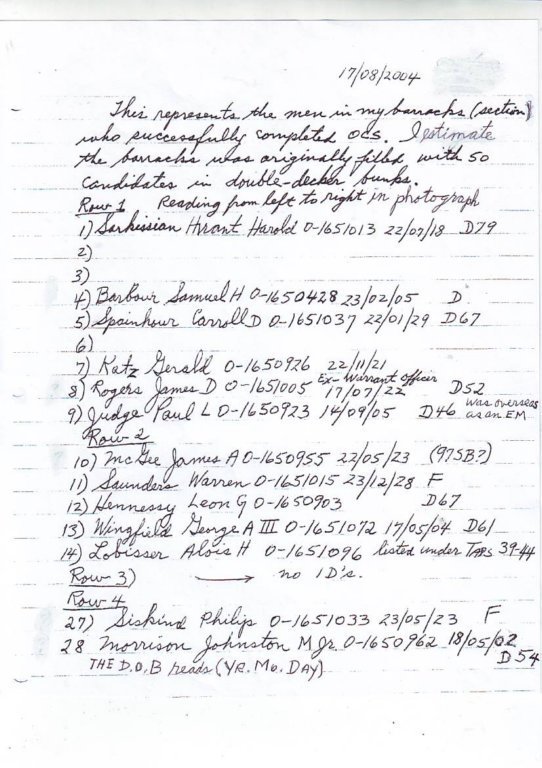 17/08/2004
This represents the men in my barracks (section)
who successfully completed OCS. I estimate
the barracks was originally filled with 50
candidates in double-decker bunks.
Row 1 Reading from left to right in photograph
1) Sarkissian Hrant Harold O-1651013 22/07/18 D79
2)
3)
4) Barbour Samuel H O-1650428 23/02/05 D.
5) Spainhour Carroll D O-1651037 22/01/29 D67
6)
7) Katz Gerald O-1650926 22/11/21
Ex-Warrant Officer
8) Rogers James D O-1651005 17/07/22 D52
9) Judge Paul L O-1650923 14/09/05 D46 was overseas as an EM
Row 2
10) McGee James A O-1650955 22/05/23 (975B?)
11) Saunders Warren O-1651015 23/12/28 F
12) Hennessy Leon G O-1650903 D67
13) Wingfield George A III O-1651072 17/05/04 D61
14) Lobisser Alois H O-1651096 listed under TARS 39-44
Row 3) → no ID's.
Row 4
27) Siskind Philip O-1651033 23/05/23 F
28 Morrison Johnston M Jr. O-1650962 18/05/02
D54
THE D.O.B reads (YR. Mo. DAY)